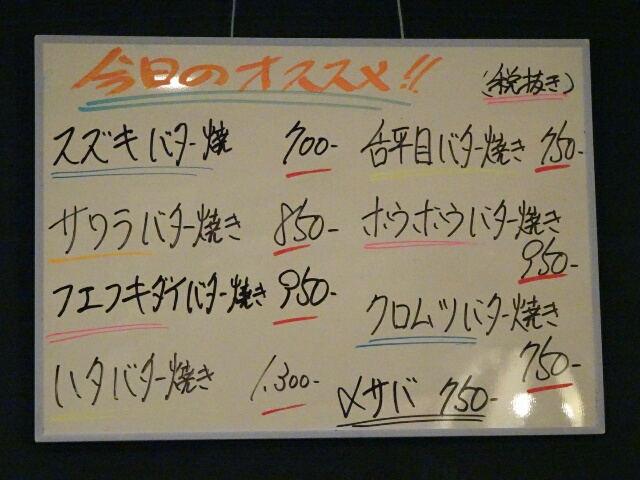 今日のオススメ!!
(税抜き)
スズキバター焼 700-
サワラバター焼き 850-
フエフキダイバター焼き 950-
ハタバター焼き 1.300-
舌平目バター焼き 750-
ホウボウバター焼き
950-
クロムツバター焼き
750-
〆サバ 750-